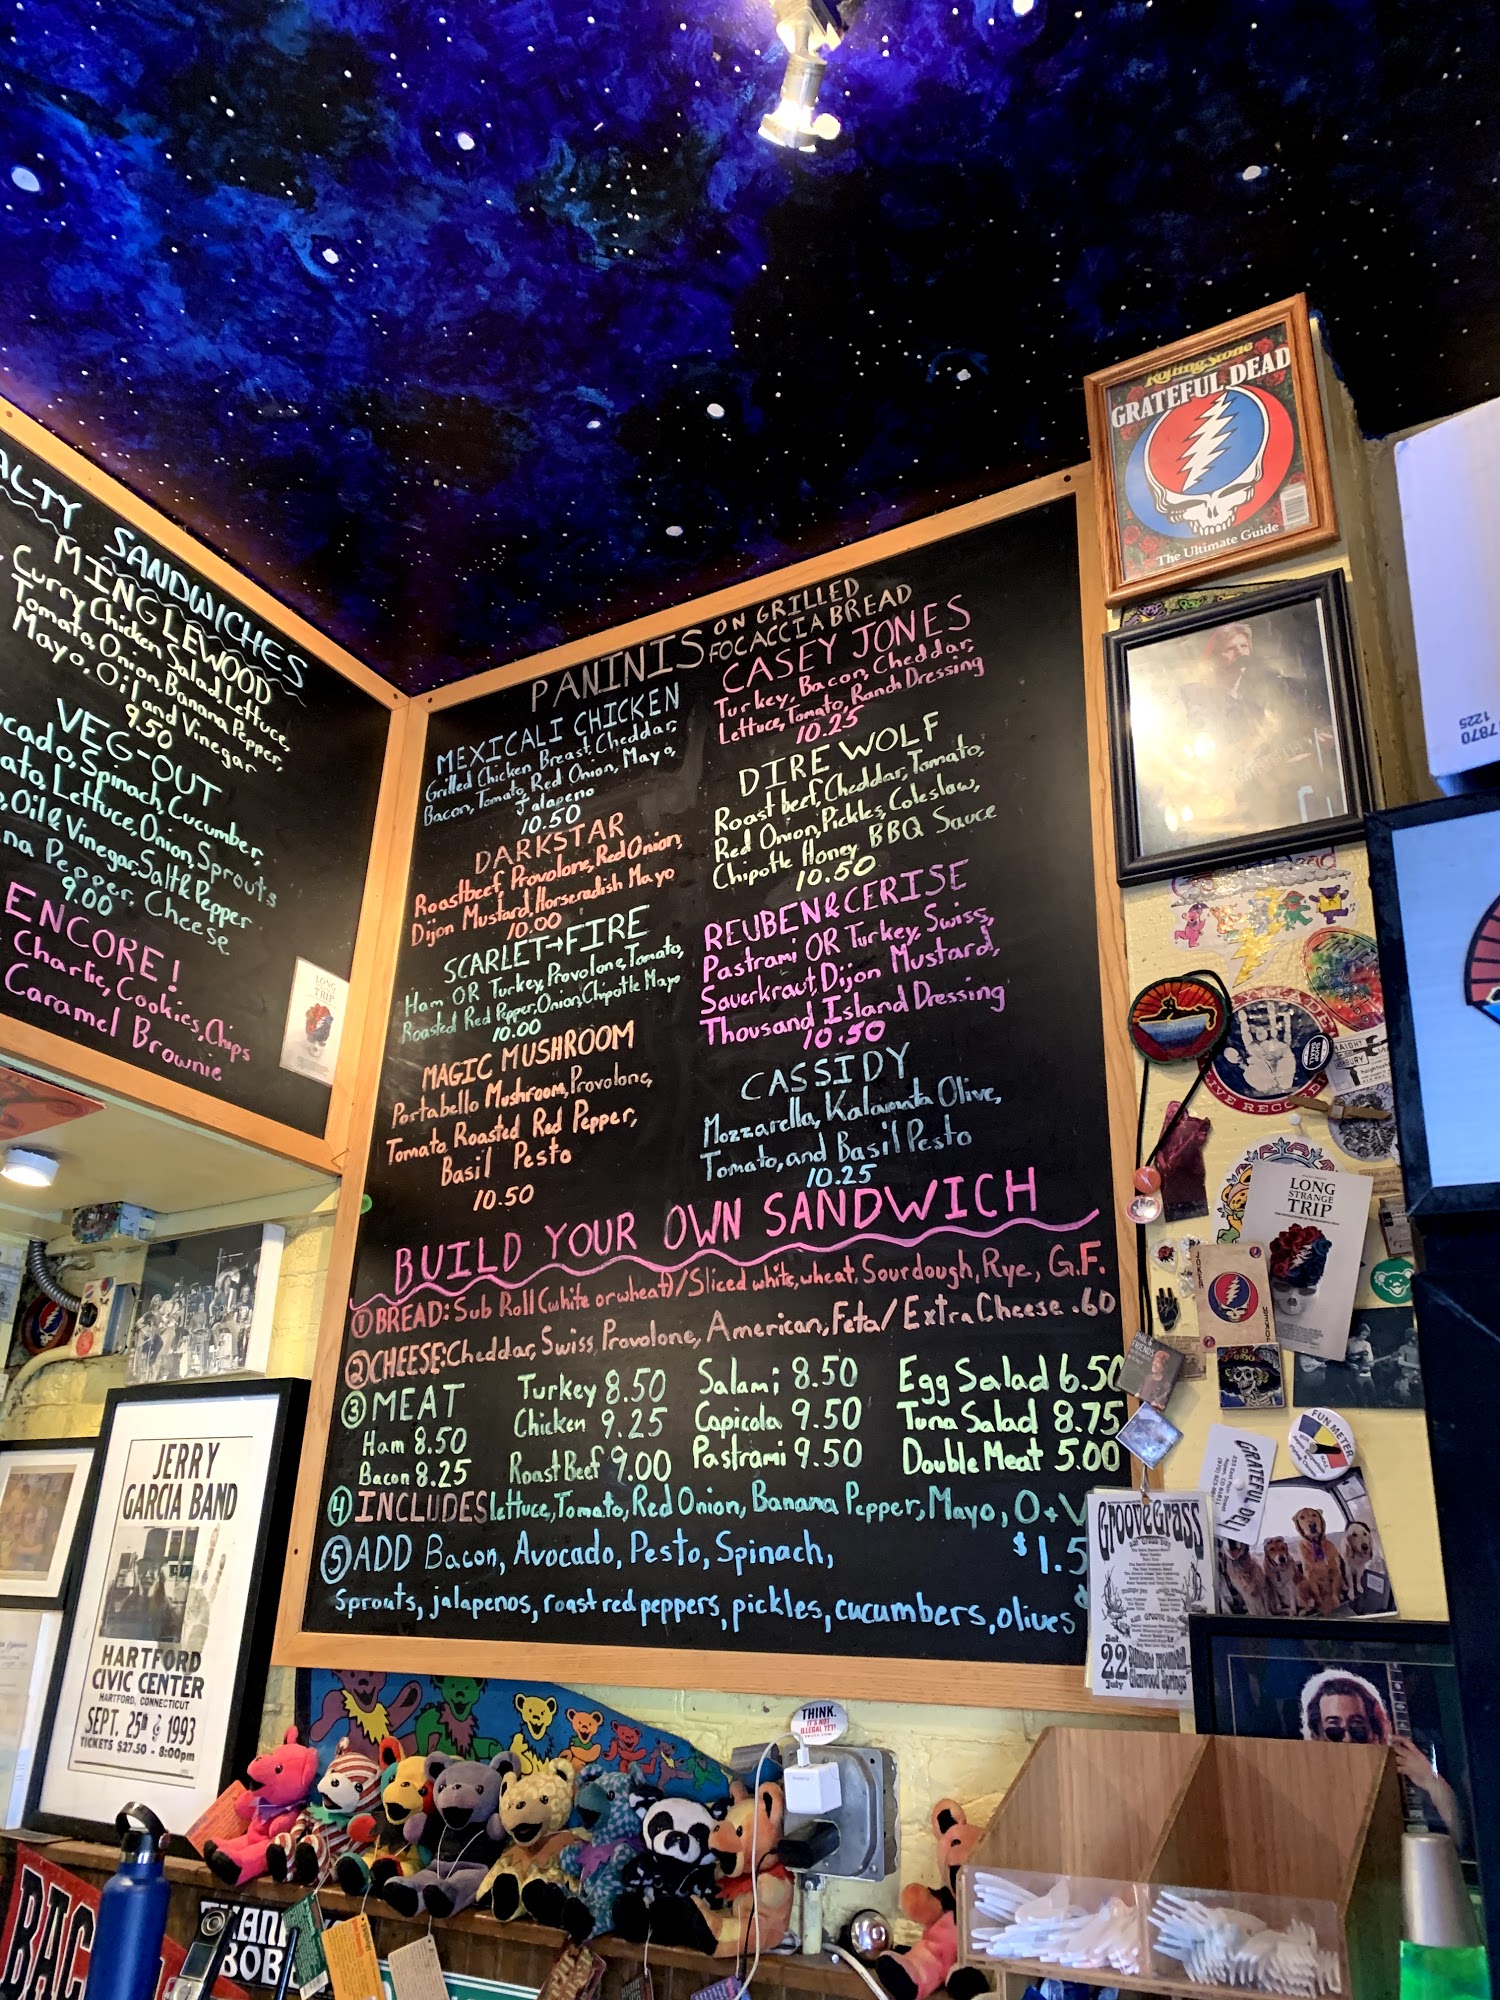 SANDWICHES
MINGLEWOOD
Curry Chicken Salad, Lettuce,
Tomato, Onion, Banana Pepper,
Mayo, Oil and Vinegar
9.50
VEG-OUT
Spinach, Cucumber,
Lettuce, Onion, Sprouts
Oil & Vinegar, Salt & Pepper
Pepper, Cheese
9.00
ENCORE!
Charlie, Cookies, Chips
Caramel Brownie
LONG
STRANGE
TRIP
PANINIS ON GRILLED
FOCACCIA BREAD
MEXICALI CHICKEN
Grilled Chicken Breast, Cheddar,
Bacon, Tomato, Red Onion, Mayo,
Jalapeno
10.50
DARKSTAR
Roastbeef, Provolone, Red Onion,
Dijon Mustard, Horseradish Mayo
10.00
SCARLET→FIRE
Ham OR Turkey, Provolone, Tomato,
Roasted Red Pepper, Onion, Chipotle Mayo
10.00
MAGIC MUSHROOM
Portabello Mushroom, Provolone,
Tomato, Roasted Red Pepper,
Basil Pesto
10.50
CASEY JONES
Turkey, Bacon, Cheddar,
Lettuce, Tomato, Ranch Dressing
10.25
DIRE WOLF
Roast beef, Cheddar, Tomato,
Red Onion, Pickles, Coleslaw,
Chipotle Honey BBQ Sauce
10.50
REUBEN & CERISE
Pastrami OR Turkey, Swiss,
Sauerkraut, Dijon Mustard,
Thousand Island Dressing
10.50
CASSIDY
Mozzarella, Kalamata Olive,
Tomato, and Basil Pesto
10.25
BUILD YOUR OWN SANDWICH
① BREAD: Sub Roll (white or wheat) / Sliced white, wheat, Sourdough, Rye, G.F.
② CHEESE: Cheddar, Swiss, Provolone, American, Feta / Extra Cheese .60
③ MEAT
Ham 8.50
Bacon 8.25
Turkey 8.50
Chicken 9.25
Roast Beef 9.00
Salami 8.50
Capicola 9.50
Pastrami 9.50
Egg Salad 6.50
Tuna Salad 8.75
Double Meat 5.00
④ INCLUDES lettuce, Tomato, Red Onion, Banana Pepper, Mayo, O + V
⑤ ADD Bacon, Avocado, Pesto, Spinach, $1.5
Sprouts, jalapenos, roast red peppers, pickles, cucumbers, olives
Rolling Stone
GRATEFUL DEAD
The Ultimate Guide
7870
1225
LIVE RECORD
LONG
STRANGE
TRIP
JOKER
FUN METER
GRATEFUL DELI
GrooveGrass
Sat.
22
July
JERRY
GARCIA BAND
HARTFORD
CIVIC CENTER
HARTFORD, CONNECTICUT
SEPT. 25th & 1993
TICKETS $27.50 - 8:00pm
THINK.
IT'S NOT
ILLEGAL YET!
BOB